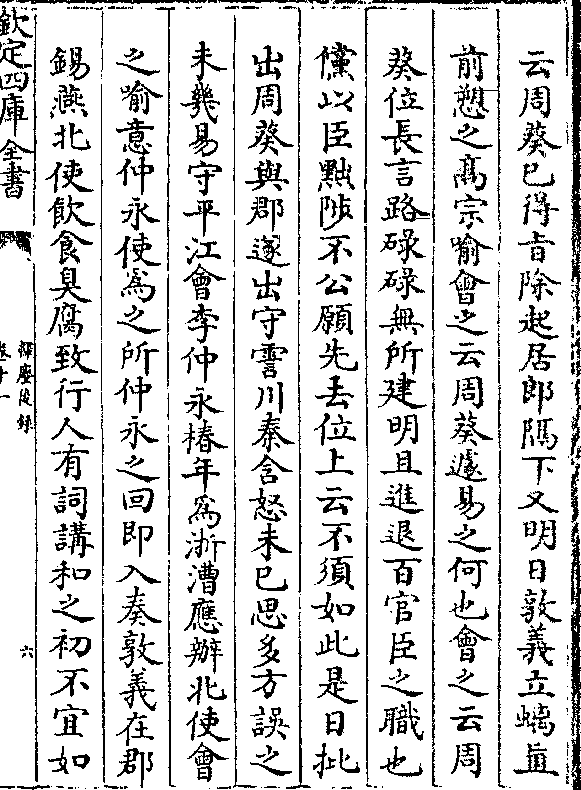 云周葵已得旨除起居郎隔下又明日敦義立螭直
前愬之髙宗喻會之云周葵遽易之何也會之云周
葵位長言路碌碌無所建明且進退百官臣之職也
儻以臣黜陟不公願先去位上云不須如此是日批
出周葵與郡遂出守霅川秦含怒未已思多方誤之
未幾易守平江會李仲永椿年為浙漕應辦北使會
之喻意仲永使為之所仲永之回即入奏敦義在郡
錫燕北使飲食臭腐致行人有詞講和之初不宜如
欽定四庫全書
揮麈後錄
卷十一
六